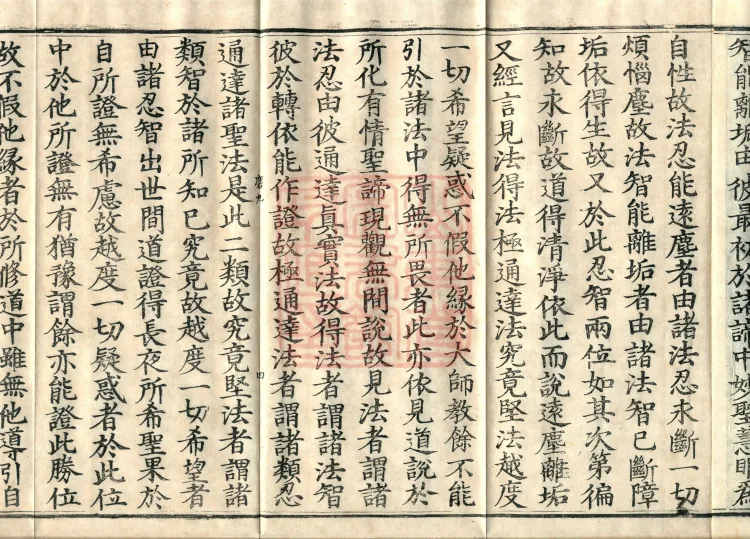 智能離垢由彼最初於諸諦中妙聖慧眼為
自性故法忍能遠塵者由諸法忍永斷一切
煩惱塵故法智能離垢者由諸法智已斷障
垢依得生故又於此忍智兩位如其次第徧
知故永斷故道得清淨依此而說遠塵離垢
又經言見法得法極通達法究竟堅法越度
一切希望疑惑不假他緣於大師教餘不能
引於諸法中得無所畏者此亦依見道說於
所化有情聖諦現觀無間說故見法者謂諸
法忍由彼通達真實法故得法者謂諸法智
彼於轉依能作證故極通達法者謂諸類忍
磨九
四
通達諸聖法是此二類故究竟堅法者謂諸
類智於諸所知已究竟故越度一切希望者
由諸忍智出世間道證得長夜所希聖果於
自所證無希慮故越度一切疑惑者於此位
中於他所證無有猶豫謂餘亦能證此勝位
故不假他緣者於所修道中雖無他導引自